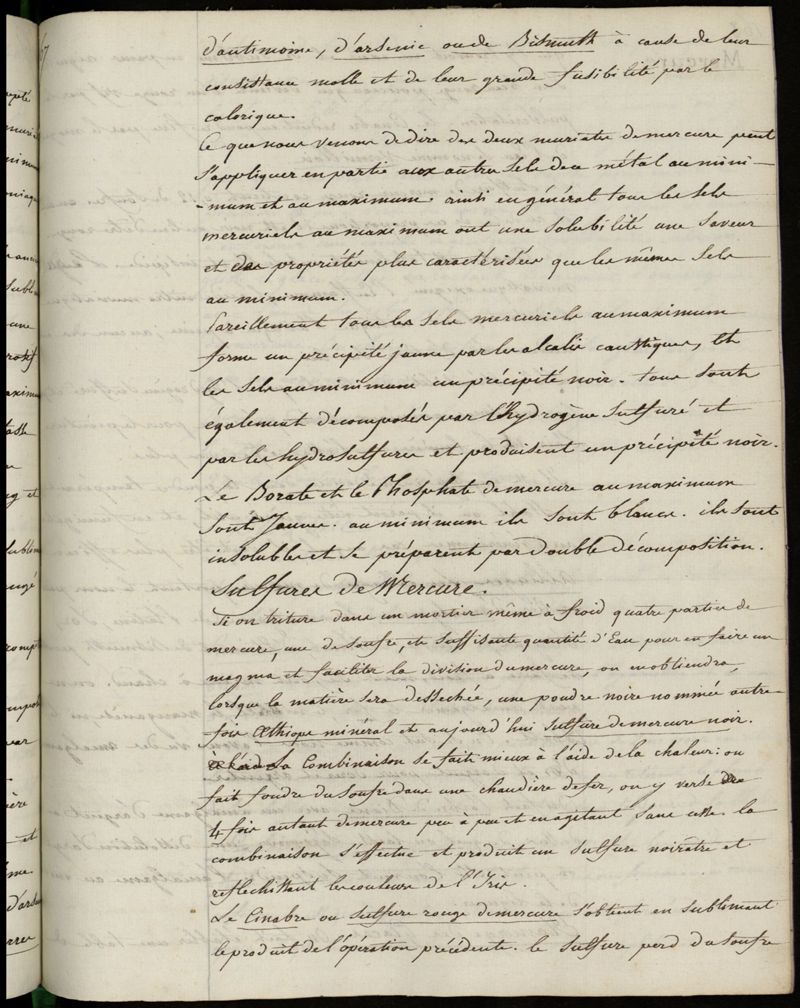 d'antimoine, d'arsenic ou de Bismuth à cause de leur
consistance molle et de leur grande fusibilité par le
calorique.
Ce que nous venons de dire des deux muriates de mercure peut
s'appliquer en partie aux autres sels de ce métal au mini-
-mum et au maximum. ainsi en général tous les sels
mercuriels au maximum ont une solubilité une saveur
et des propriétés plus caractérisées que les mêmes sels
au minimum.
Pareillement tous les sels mercuriels au maximum
forme un précipité jaune par les alcalis caustiques, Et
les sels au minimum un précipité noir. tous sont
également décomposés par l'hydrogène sulfuré et
par les hydrosulfures et produisent un précipité noir.
Le Borate et le Phosphate de mercure au maximum
sont Jaunes. au minimum ils sont blancs. ils sont
insolubles et se préparent par double décomposition.
Sulfures de Mercure.
Si on triture dans un mortier même à froid quatre parties de
mercure, une de soufre, et suffisante quantité d'Eau pour en faire un
magma et faciliter la division du mercure, on en obtiendra,
lorsque la matière sera dessechée, une poudre noire nommée autre-
fois Œthiops minéral et aujourd'hui sulfure de mercure noir.
à l'aide La Combinaison se fait mieux à l'aide de la chaleur: on
fait foudre du soufre dans une chaudière de fer, on y verse
4 fois autant de mercure peu à peu et en agitant sans cesse. la
combinaison s'effectue et produit un sulfure noirâtre et
reflechissant les couleurs de l'Iris.
Le Cinabre ou sulfure rouge de mercure s'obtient en sublimant
le produit de l'opération précédente. le sulfure perd du soufre